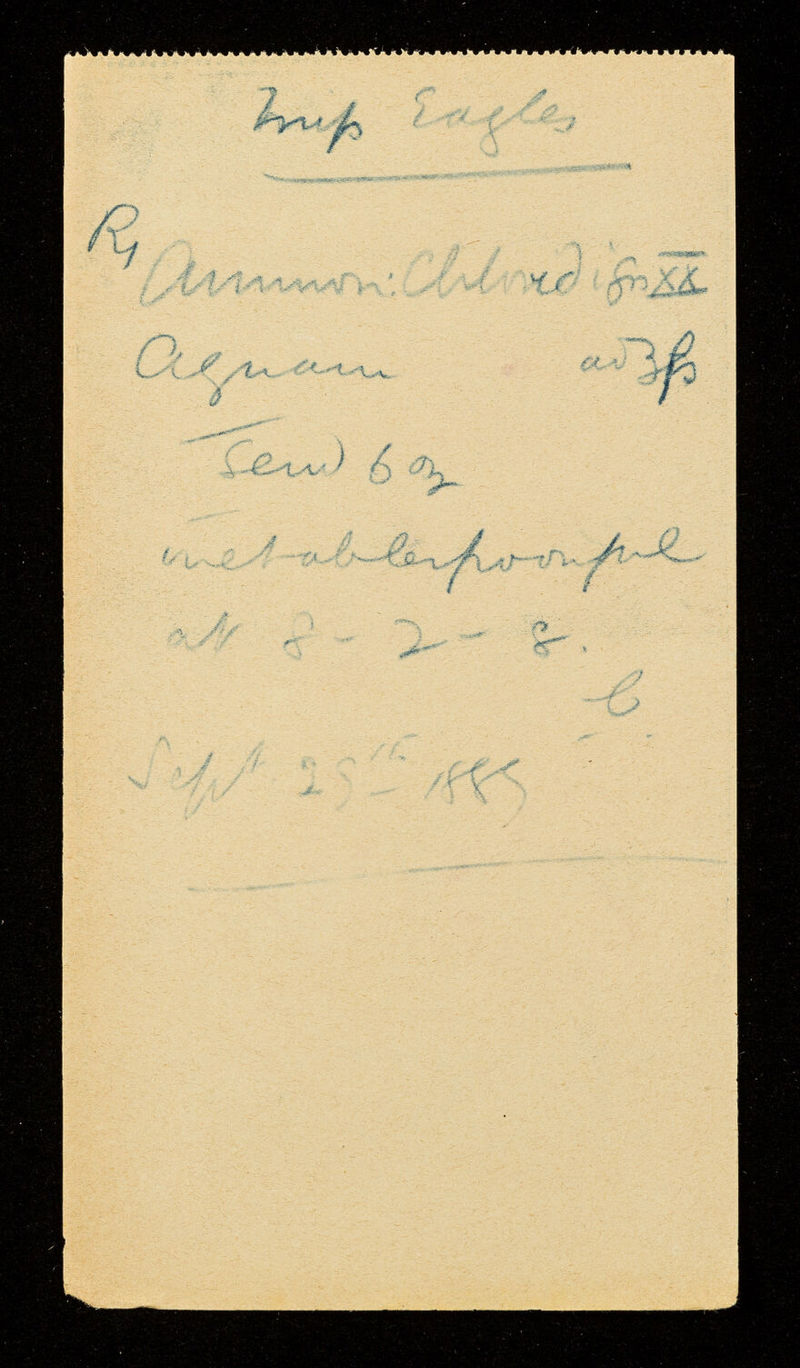 Miss Eagles
Rx
Ammon: Chloridi grs XX
Aquam ad ℥ß
Send 6 oz
one tablespoonful
at 8 - 2 - 8.
C.
Sept 29th 1889